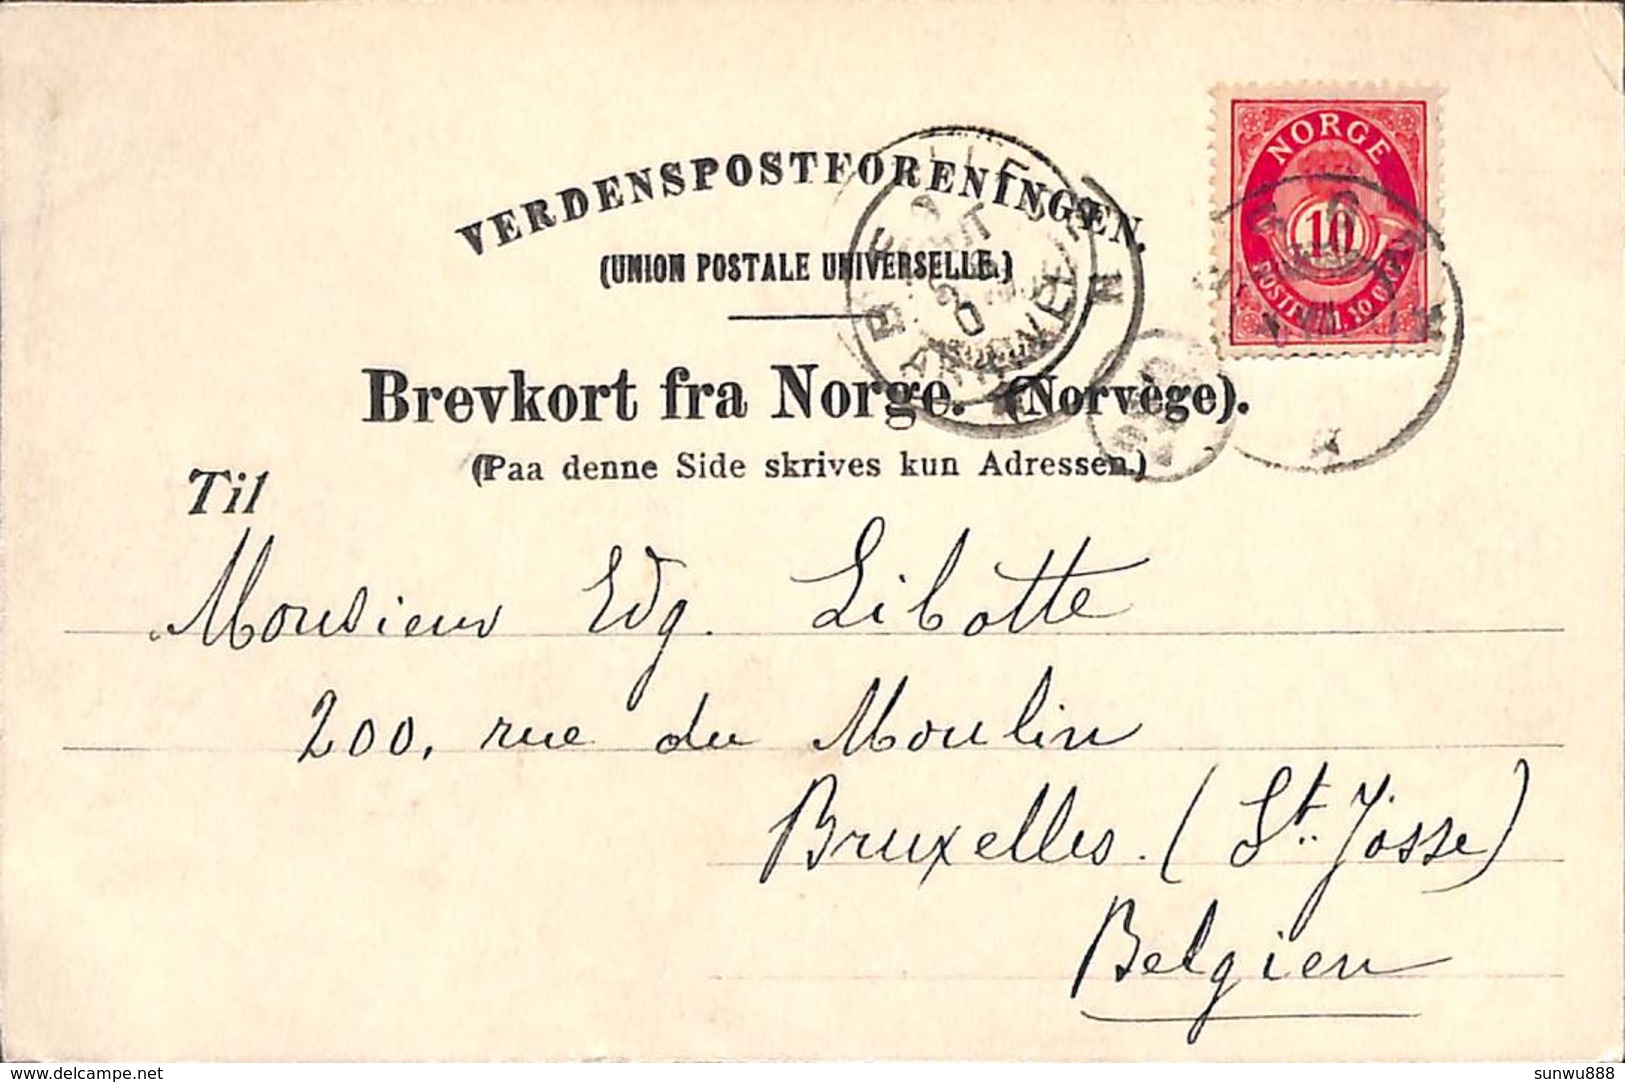 VERDENSPOSTFORENINGEN.
(UNION POSTALE UNIVERSELLE.)
NORGE
10
Brevkort fra Norge. (Norvège).
(Paa denne Side skrives kun Adressen.)
Til
Monsieur Edg. Libotte
200, rue du Moulin
Bruxelles. (St. Josse)
Belgien
www.delcampe.net
sunwu888